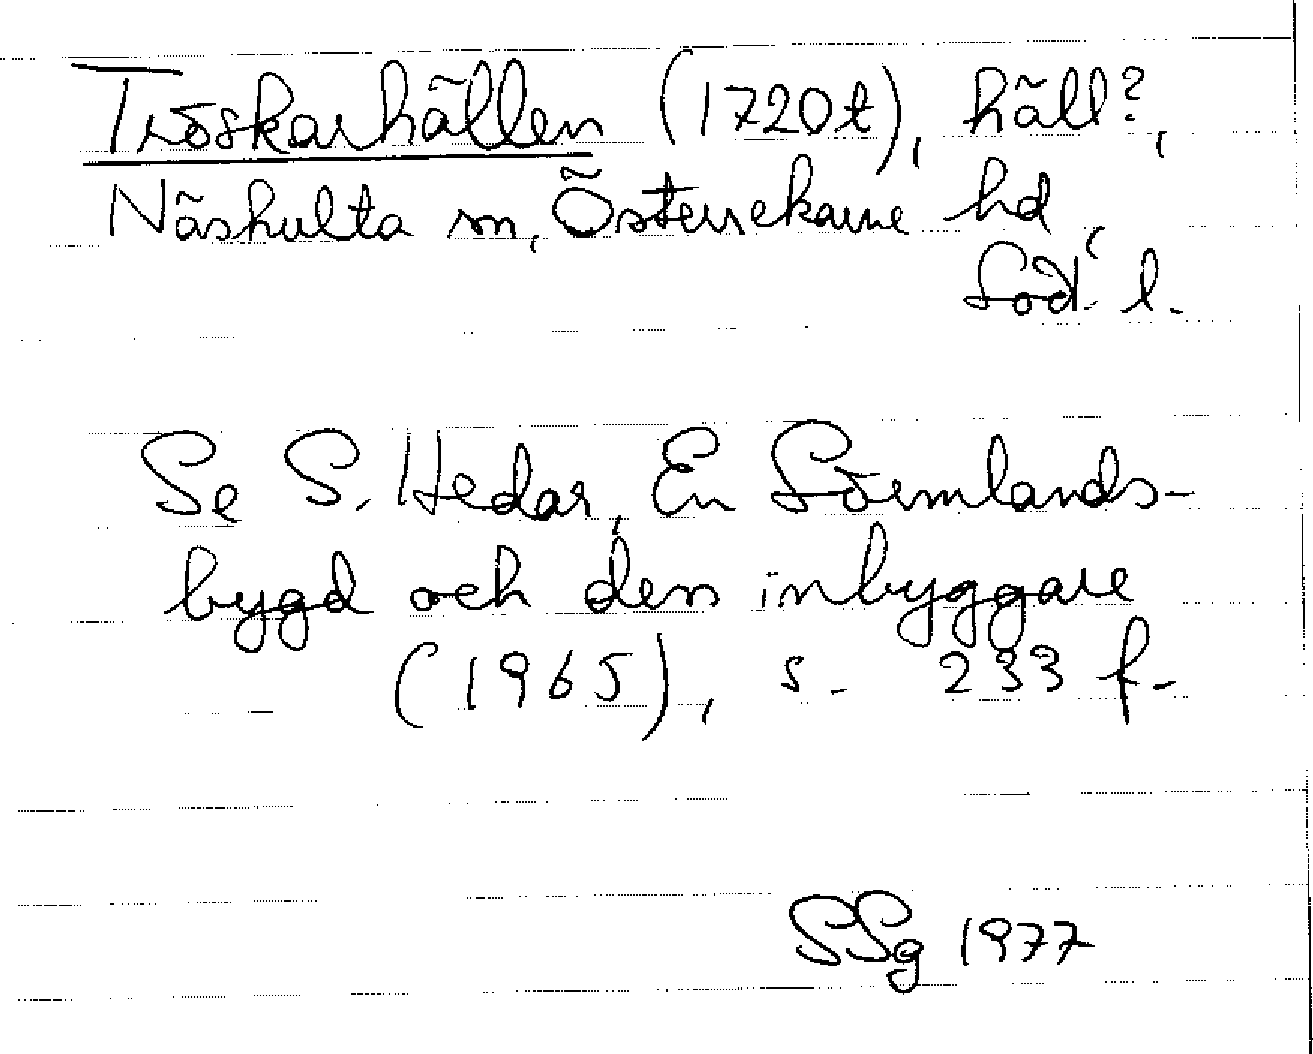 Tröskarhällen (1720t), häll?,
Näshulta sn, Österrekarne hd,
Söd. l.
Se S. Hedar, En Sörmlands-
bygd och dess inbyggare
(1965), s. 233 f.
SSg 1977